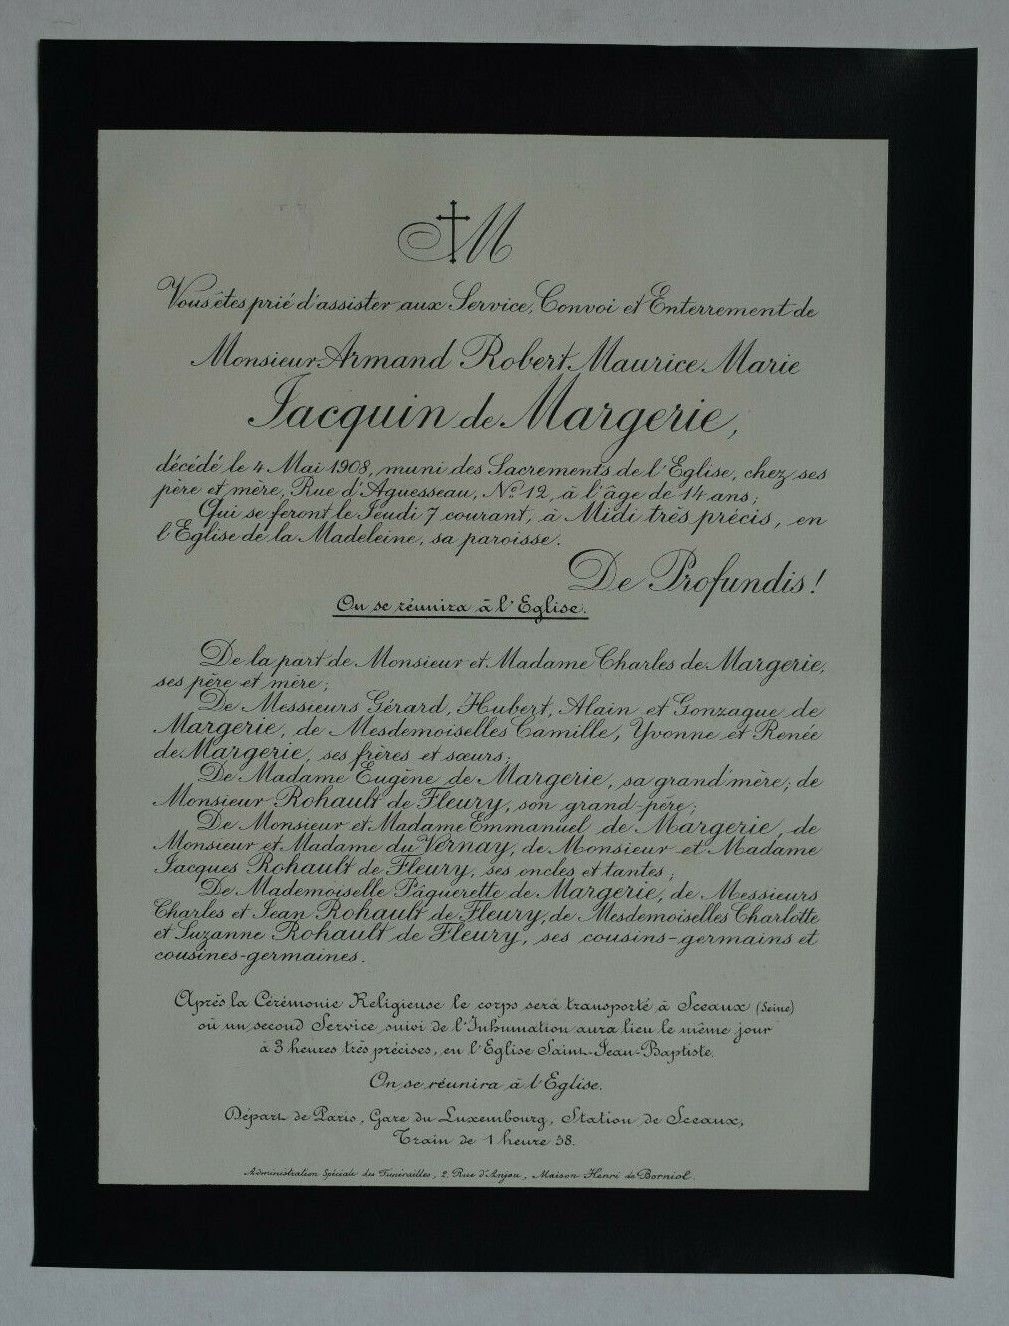 M
Vous êtes prié d'assister aux Service, Convoi et Enterrement de
Monsieur Armand Robert Maurice Marie
Jacquin de Margerie,
décédé le 4 Mai 1908, muni des Sacrements de l'Eglise, chez ses
père et mère, Rue d'Aguesseau, N° 12, à l'âge de 14 ans;
Qui se feront le Jeudi 7 courant, à Midi très précis, en
l'Eglise de la Madeleine, sa paroisse.
De Profundis!
On se réunira à l'Eglise.
De la part de Monsieur et Madame Charles de Margerie,
ses père et mère;
De Messieurs Gérard, Hubert, Alain et Gonzague de
Margerie, de Mesdemoiselles Camille, Yvonne et Renée
de Margerie, ses frères et sœurs;
De Madame Eugène de Margerie, sa grand'mère; de
Monsieur Rohault de Fleury, son grand-père;
De Monsieur et Madame Emmanuel de Margerie, de
Monsieur et Madame du Vernay, de Monsieur et Madame
Jacques Rohault de Fleury, ses oncles et tantes;
De Mademoiselle Pâquerette de Margerie, de Messieurs
Charles et Jean Rohault de Fleury, de Mesdemoiselles Charlotte
et Suzanne Rohault de Fleury, ses cousins-germains et
cousines-germaines.
Après la Cérémonie Religieuse le corps sera transporté à Sceaux (Seine)
où un second Service suivi de l'Inhumation aura lieu le même jour
à 3 heures très précises, en l'Eglise Saint-Jean-Baptiste.
On se réunira à l'Eglise.
Départ de Paris, Gare du Luxembourg, Station de Sceaux,
Train de 1 heure 58.
Administration Spéciale des Funérailles, 2, Rue d'Anjou, Maison Henri de Borniol.